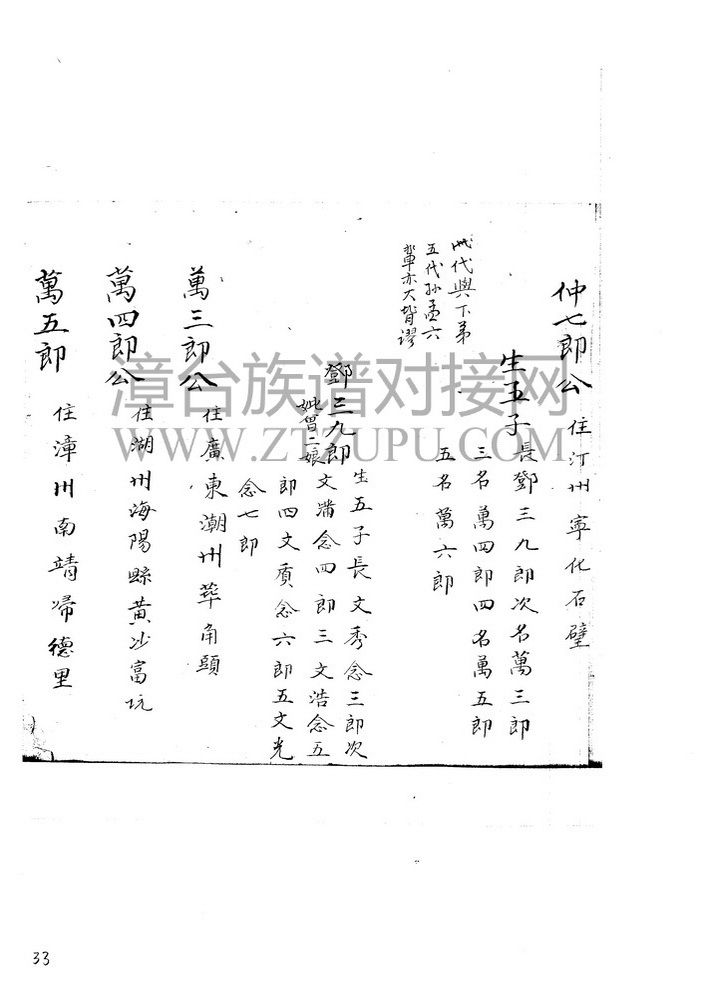 仲七郎公 住汀州寧化石壁
生五子 長鄧三九郎次名萬三郎
三名萬四郎四名萬五郎
五名萬六郎
此代與下第
五代孫孟六
輩亦大皆謬
鄧三九郎 生五子長文秀念三郎次
妣曾二娘 文潘念四郎三文浩念五
郎四文質念六郎五文光
念七郎
萬三郎公 住廣東潮州蓽角頭
萬四郎公 住湖州海陽縣黃沙富坑
萬五郎 住漳州南靖帰德里
漳台族谱对接网
WWW.ZTZUPU.COM
33